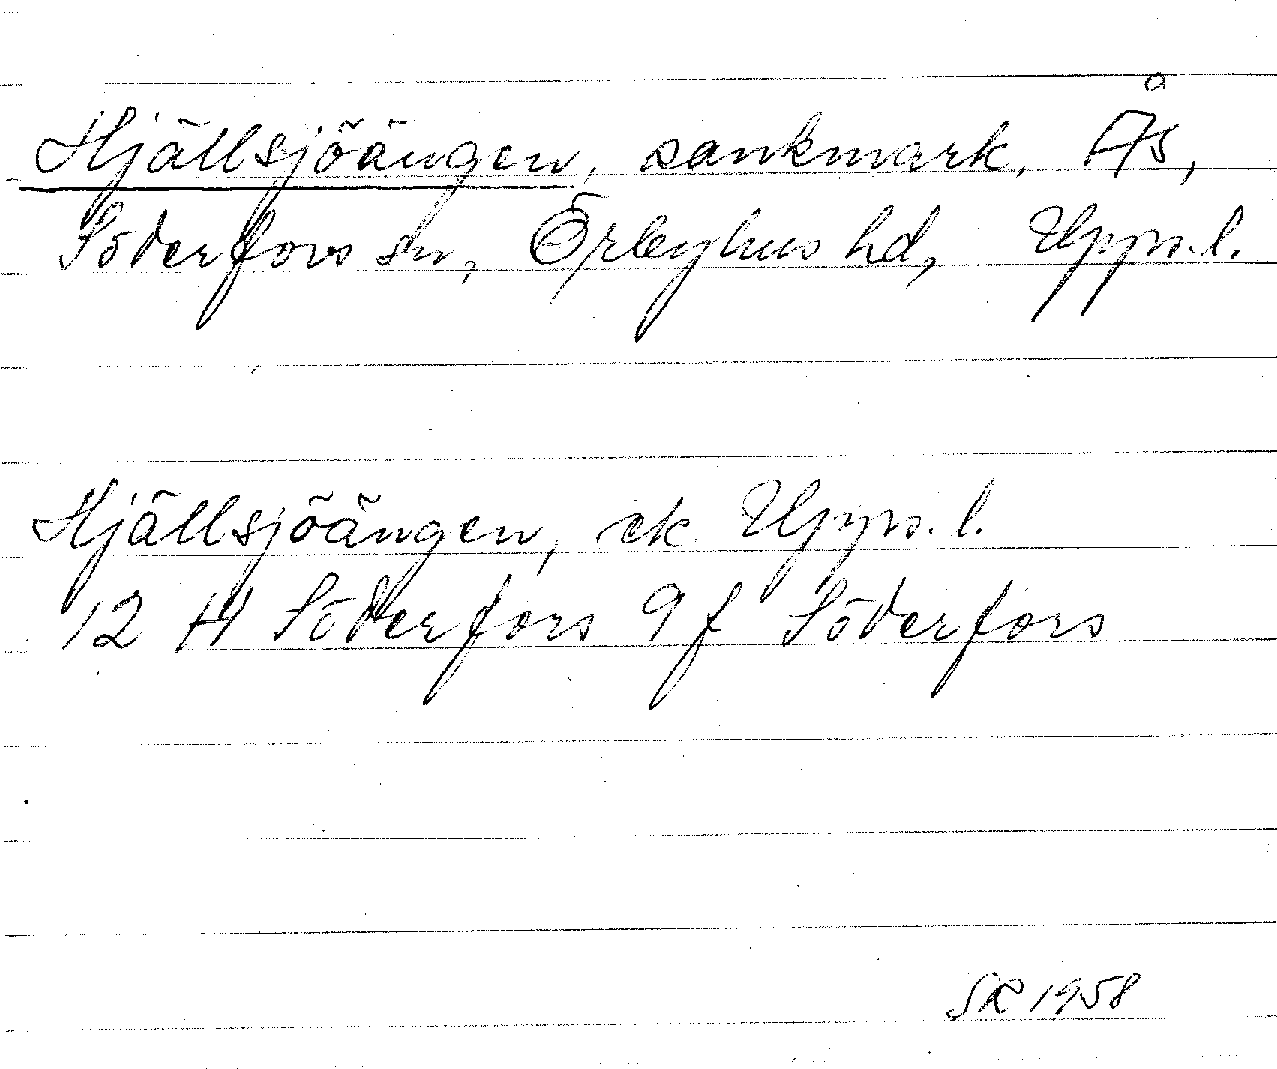 Hjällsjöängen, sankmark, Ås,
Söderfors sn, Örbyhus hd, Upps. l.
Hjällsjöängen, ek Upps. l.
12 H Söderfors 9f Söderfors
SR 1958